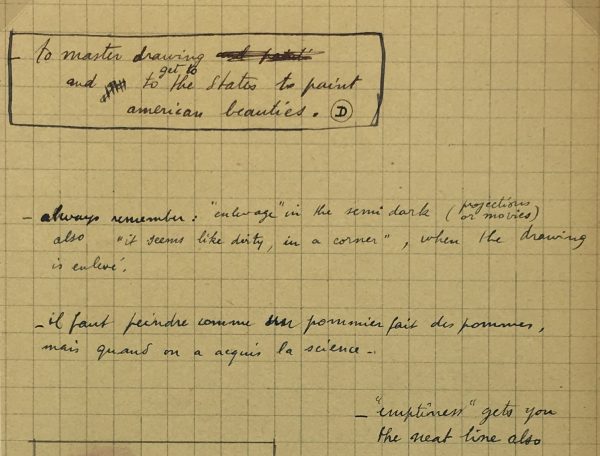 - to master drawing
get to
and to the States to paint
american beauties. D
- always remember: "enlevage" in the semi dark (projections or movies)
also "it seems like dirty, in a corner", when the drawing
is enlevé.
- il faut peindre comme un pommier fait des pommes,
mais quand on a acquis la science -
- "emptiness" gets you
the neat line also